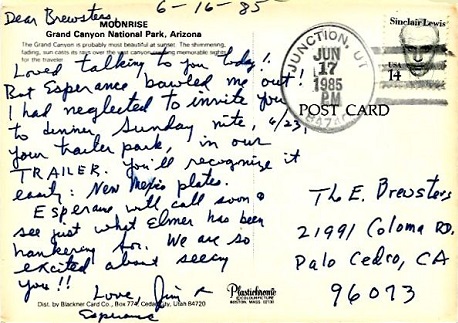 Dear Brewsters 6-16-85
MOONRISE
Grand Canyon National Park, Arizona
The Grand Canyon is probably most beautiful at sunset. The shimmering,
fading, sun casts its rays over the vast canyon making memorable sights
for the traveler.
Loved talking to you today!
But Esperance bawled me out!
I had neglected to invite you
to dinner, Sunday nite, 6/23,
your trailer park, in our
TRAILER. You'll recognize it
easily: New Mexico plates.
Esperance will call soon &
see just what Elmer has been
hankering for. We are so
excited about seeing
you!!
Love, Jim &
Esperance
Dist. by Blackner Card Co., Box 774, Cedar City, Utah 84720
Plastichrome
JUNCTION, UT
JUN
17
1985
PM
Sinclair Lewis
USA
14
POST CARD
Th E. Brewsters
21991 Coloma RD.
Palo Cedro, CA
96073